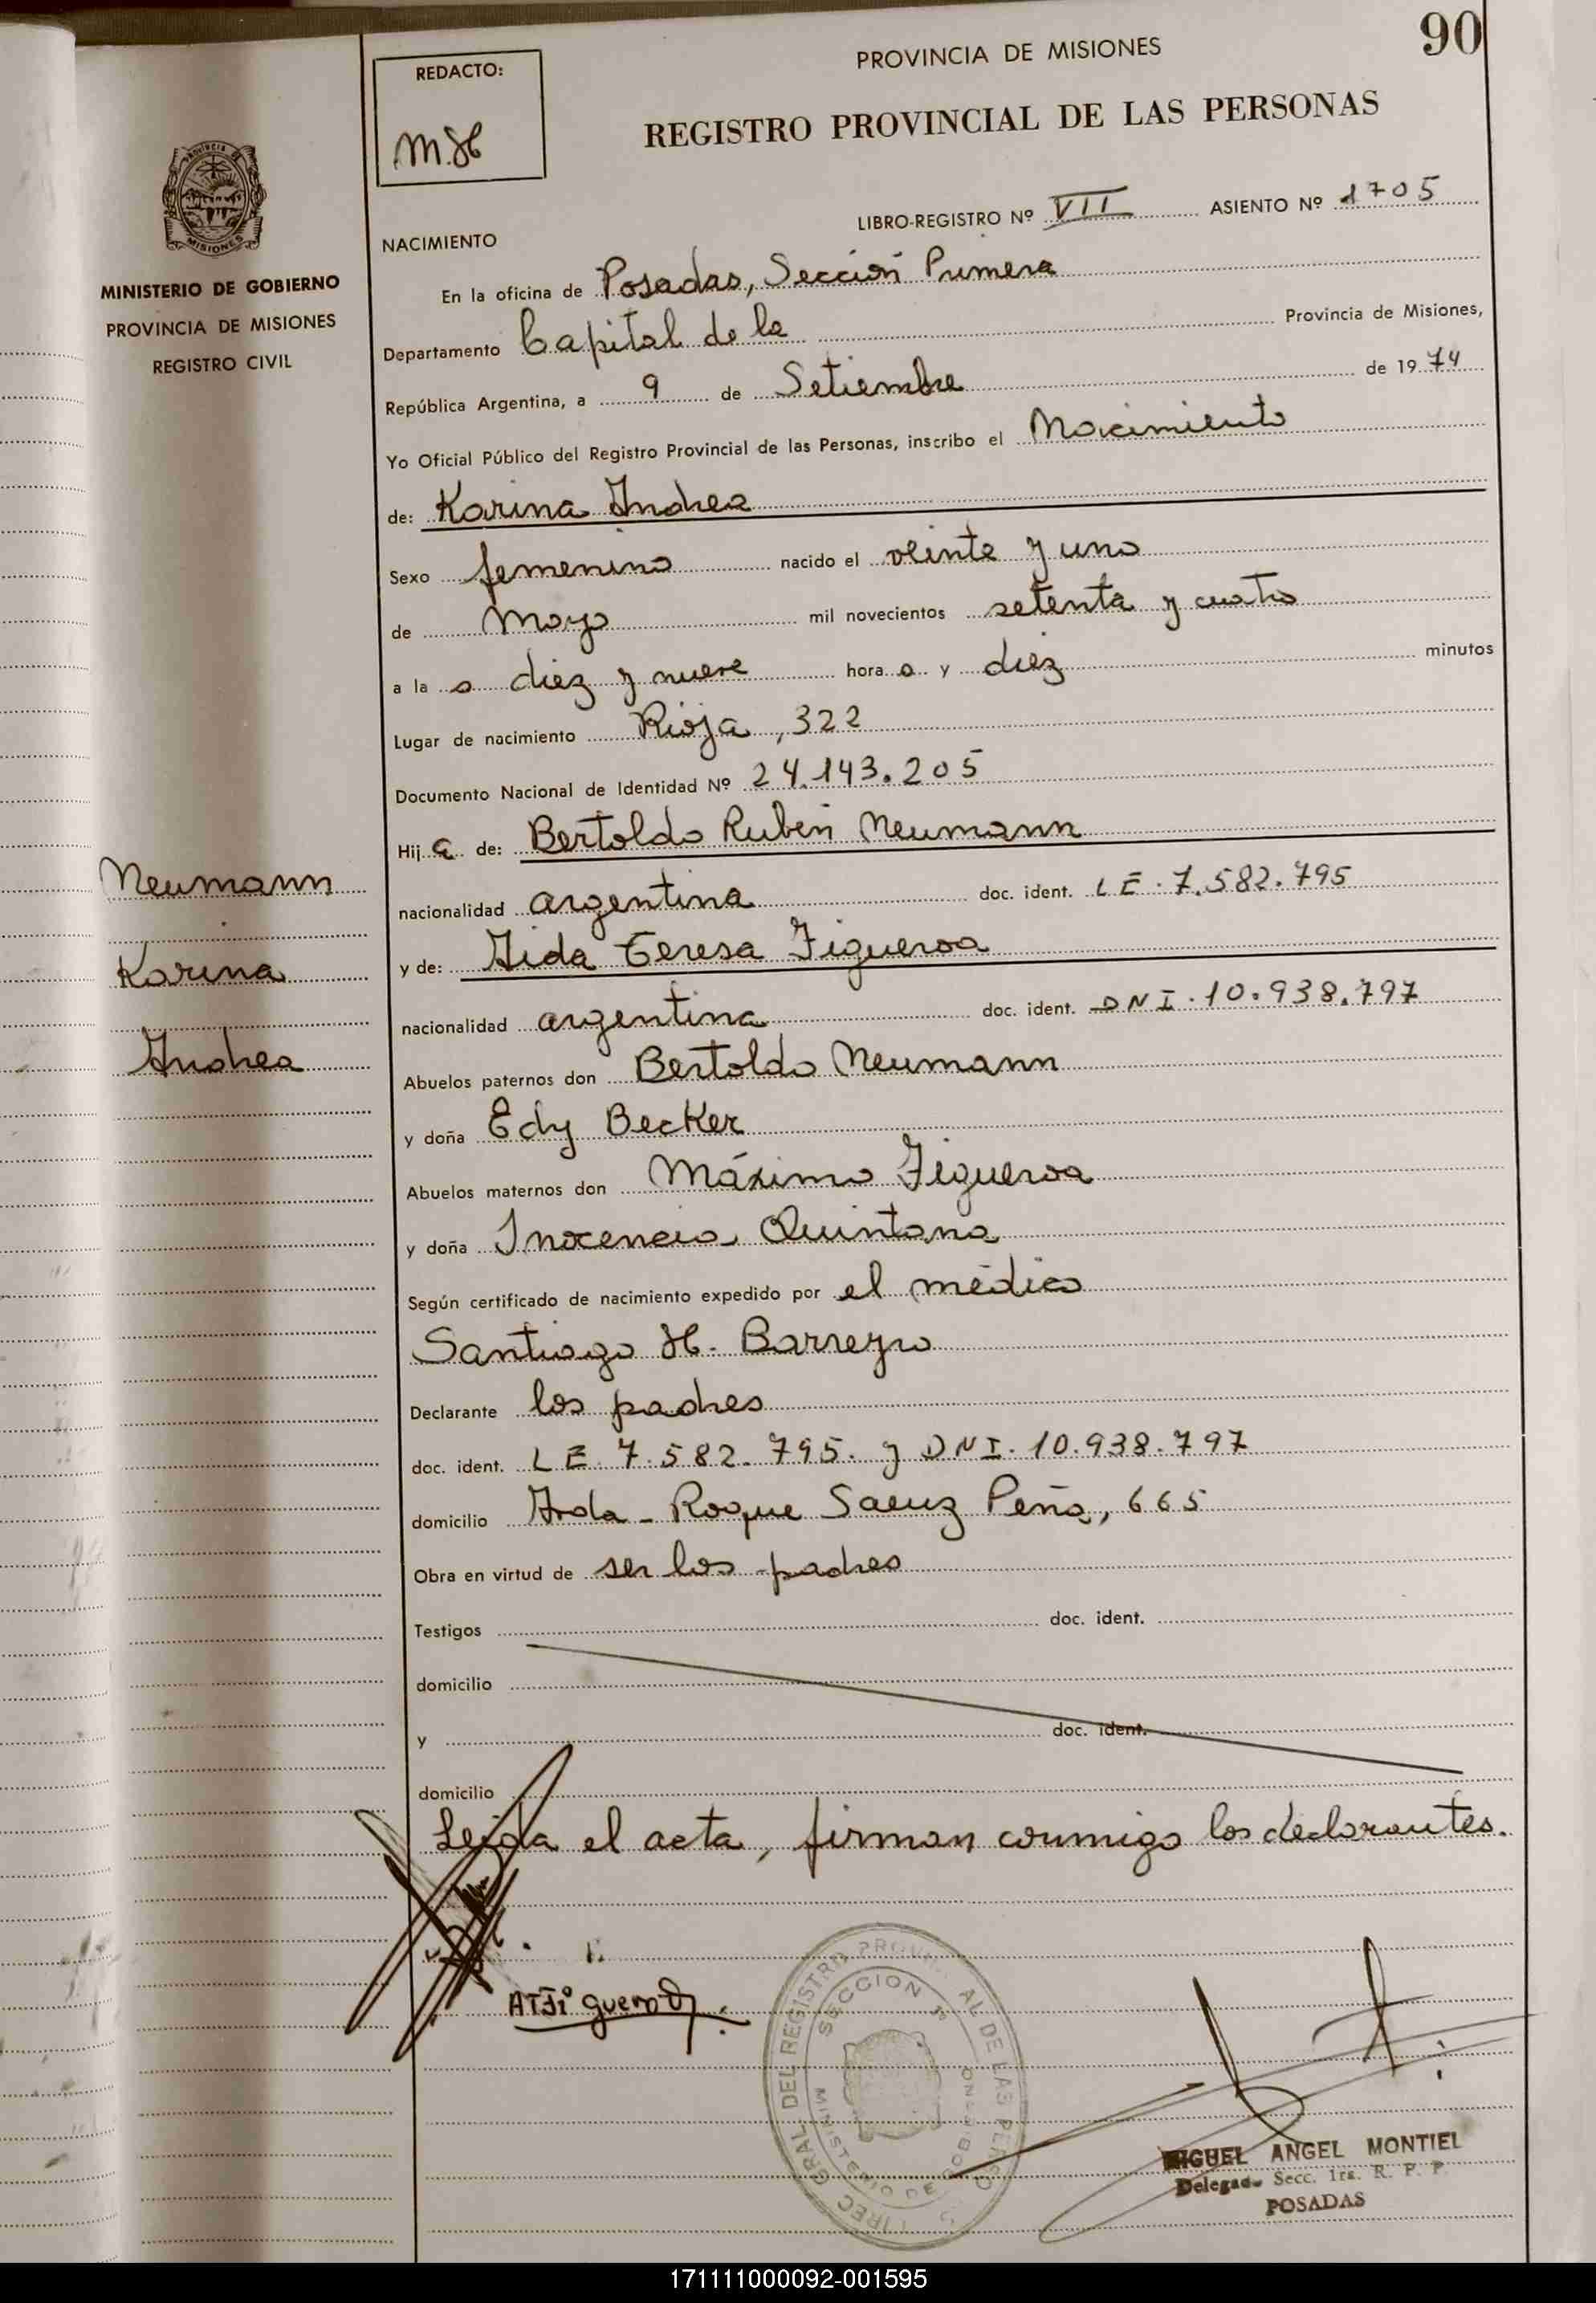 90
PROVINCIA DE MISIONES
REDACTO:
M.H
REGISTRO PROVINCIAL DE LAS PERSONAS
PROVINCIA DE
MISIONES
LIBRO-REGISTRO Nº VII ASIENTO Nº 1705
NACIMIENTO
MINISTERIO DE GOBIERNO
PROVINCIA DE MISIONES
REGISTRO CIVIL
En la oficina de Posadas, Sección Primera
Departamento Capital de la Provincia de Misiones,
República Argentina, a 9 de Setiembre de 1974
Yo Oficial Público del Registro Provincial de las Personas, inscribo el Nacimiento
de: Karina Andrea
Sexo femenino nacido el veinte y uno
de Mayo mil novecientos setenta y cuatro
a la s diez y nueve hora s y diez minutos
Lugar de nacimiento Rioja, 322
Documento Nacional de Identidad Nº 24.143.205
Hij a de: Bertoldo Rubén Neumann
nacionalidad argentina doc. ident. LE. 7.582.795
y de: Aida Teresa Figueroa
nacionalidad argentina doc. ident. DNI. 10.938.797
Abuelos paternos don Bertoldo Neumann
y doña Edy Becker
Abuelos maternos don Máximo Figueroa
y doña Inocencia Quintana
Según certificado de nacimiento expedido por el médico
Santiago H. Barreyro
Declarante los padres
doc. ident. LE. 7.582.795. y DNI. 10.938.797
domicilio Avda - Roque Saenz Peña, 665
Obra en virtud de ser los padres
Testigos doc. ident.
domicilio
y doc. ident.
domicilio
Leida el acta, firman conmigo los declarantes.
Neumann
Karina
Andrea
ATFigueroa
DIREC. GRAL. DEL REGISTRO PROVINCIAL DE LAS PERSONAS
SECCION 1ª
MINISTERIO DE GOBIERNO
MIGUEL ANGEL MONTIEL
Delegado Secc. 1ra. R. P. P.
POSADAS
171111000092-001595